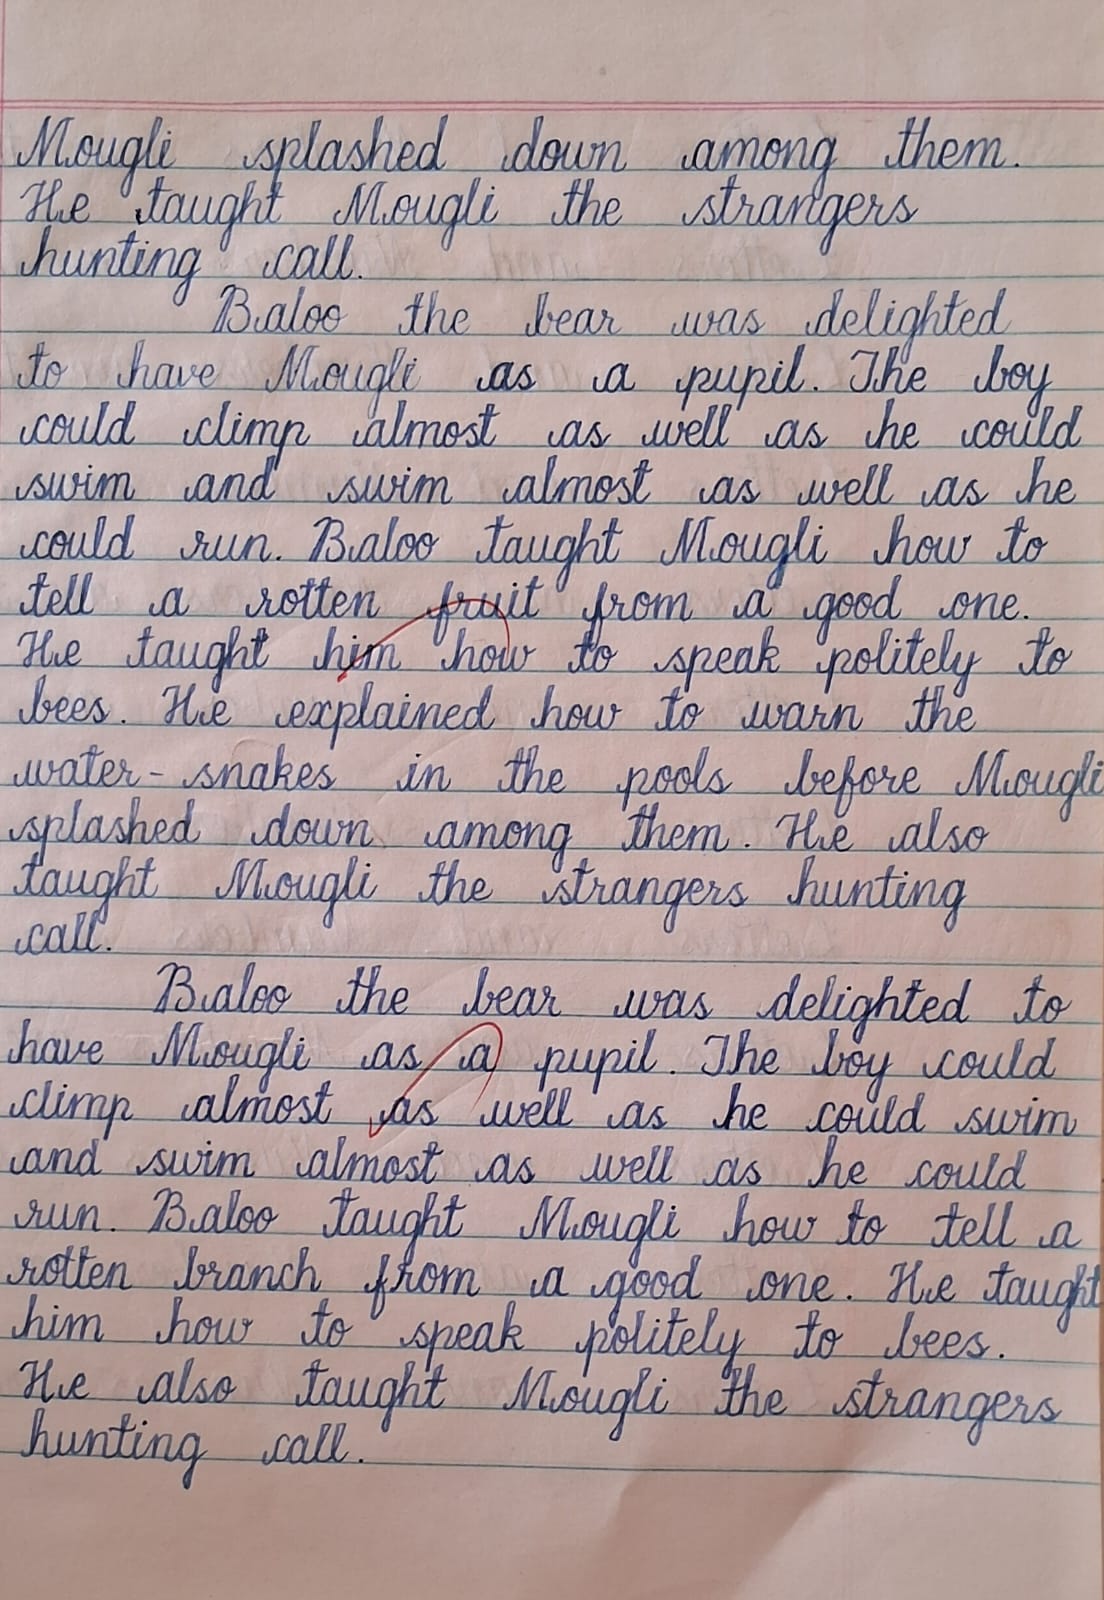 Mougli splashed down among them.
He taught Mougli the strangers
hunting call.
Baloo the bear was delighted
to have Mougli as a pupil. The boy
could climp almost as well as he could
swim and swim almost as well as he
could run. Baloo taught Mougli how to
tell a rotten fruit from a good one.
He taught him how to speak politely to
bees. He explained how to warn the
water-snakes in the pools before Mougli
splashed down among them. He also
taught Mougli the strangers hunting
call.
Baloo the bear was delighted to
have Mougli as a pupil. The boy could
climp almost as well as he could swim
and swim almost as well as he could
run. Baloo taught Mougli how to tell a
rotten branch from a good one. He taught
him how to speak politely to bees.
He also taught Mougli the strangers
hunting call.